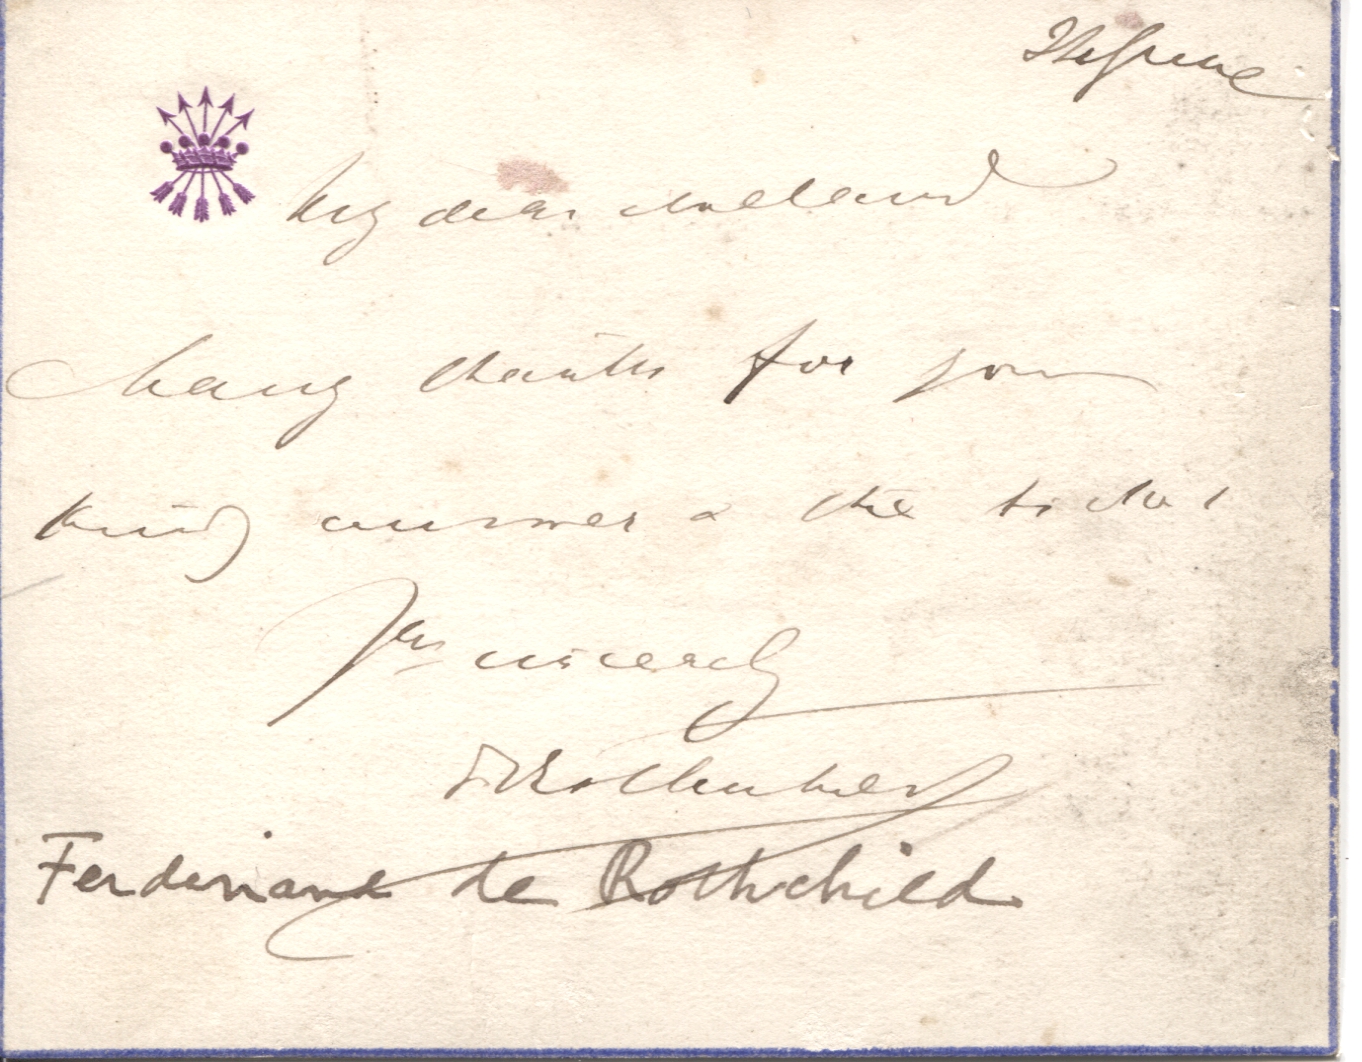 26 June
My dear Holland
Many thanks for your
kind answer & the ticket
Yrs sincerely
FRothschild
Ferdinand de Rothschild